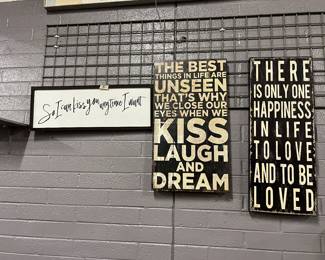 So I can kiss you anytime I want
THE BEST
THINGS IN LIFE ARE
UNSEEN
THAT'S WHY
WE CLOSE OUR
EYES WHEN WE
KISS
LAUGH
AND
DREAM
THERE
IS ONLY ONE
HAPPINESS
IN LIFE
TO LOVE
AND TO BE
LOVED